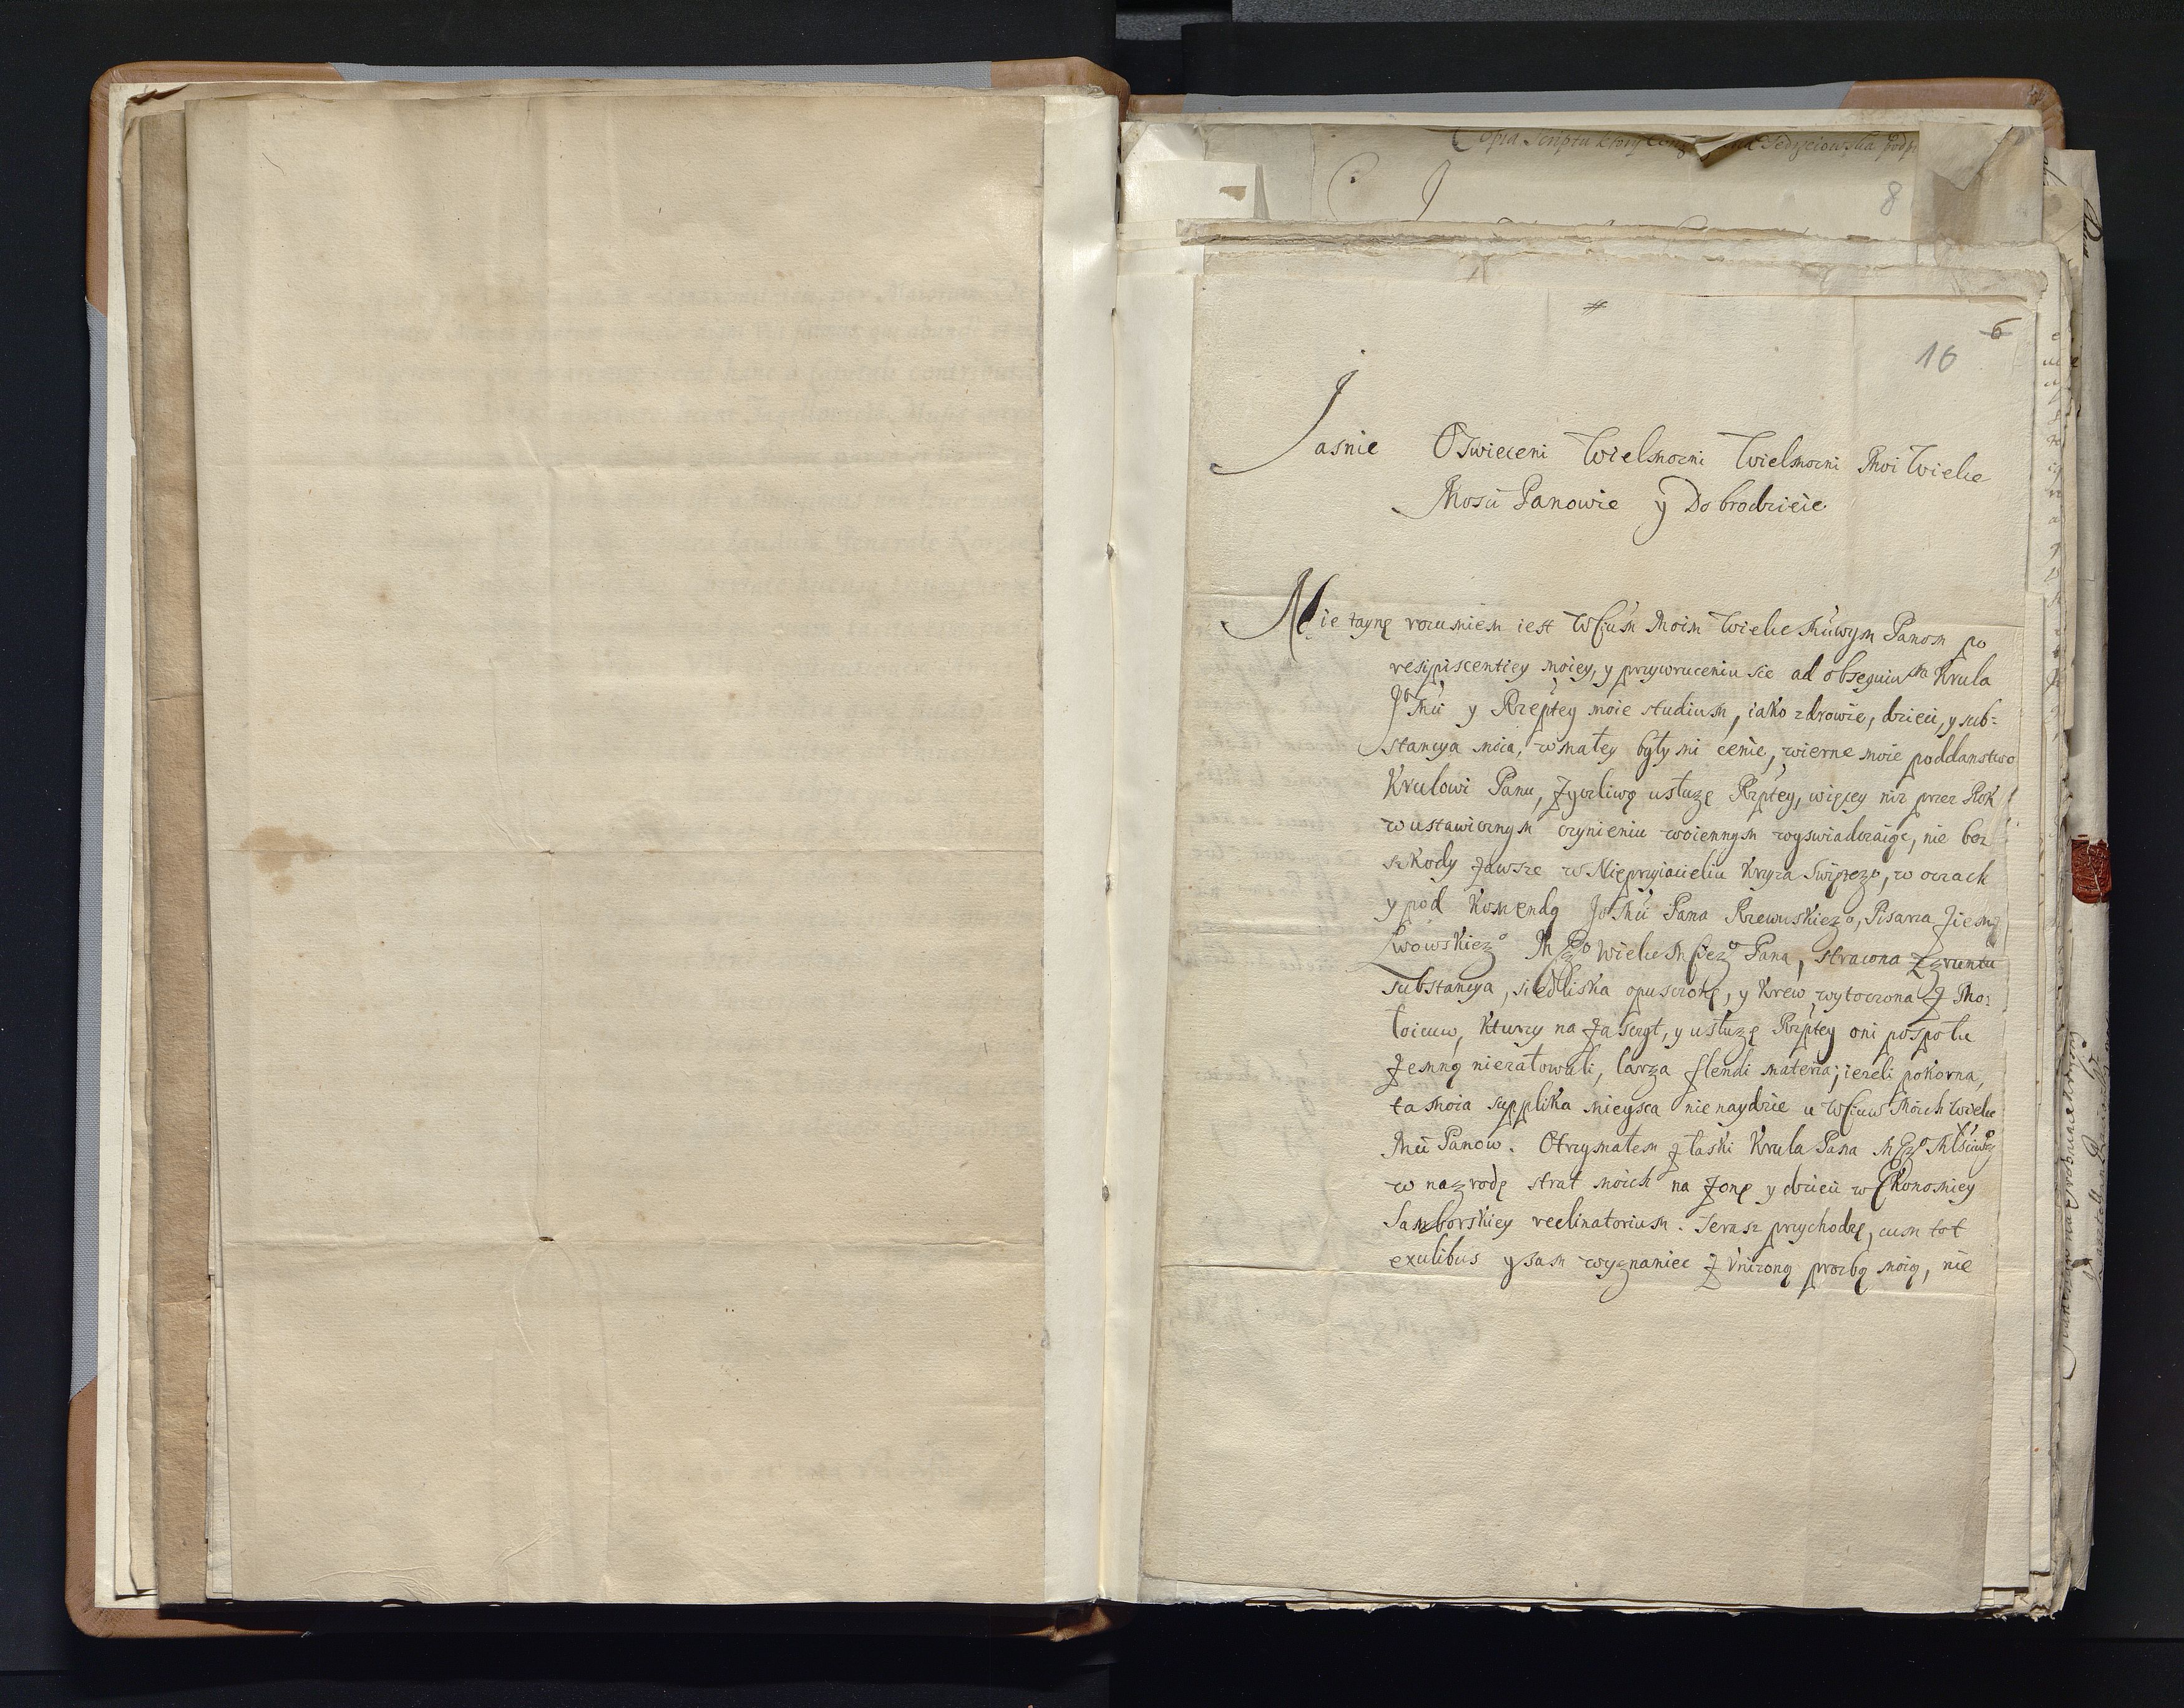 Copia Scriptu ktory
8
#
6
16
Jasnie Oswieceni Wielmozni Wielmozni Moi Wielce
Mosci Panowie y Dobrodzieie
Nie tayne rozumiem iest WCium Moim Wielce Mciwym Panom po
resipiscentiey moiey, y przywruceniu sie ad obsequium Krula
JoMci y Rzeptey moie studium, iako zdrowie, dzieci, y sub=
stancya moia, w małey były mi cenie, wierne moie poddanstwo
Krulowi Panu, Zyczliwą usługę Rzptey, więcey niz przez Rok
w ustawicznym czynieniu woiennym wyswiadczaiąc, nie bez
szkody Zawsze w Nieprzyiacielu Krzyza Swiętego, w oczach
y pod Komendą JoMci Pana Rzewuskiego, Pisarza Ziems
Lwowskieg° Mg° Wielce Mcieg° Pana, stracona Zgruntu
substancya, siedliska opuszczone, y krew wytoczona Z Mo=
łoicuw, Kturzy na Zaszczyt, y usługę Rzptey oni pospołu
Zemną nieżałowali, larga flendi materia; iezeli pokorna,
ta moia supplika mieysca nie naydzie u WCiuw Moich Wielce
Mci Panow. Otrzymałem z łaski Krula Pana
w nagrodę strat moich na Zonę y dzieci w Ekonomiey
Samborskiey reclinatorium. Terasz przychodzę, cum tot
exulibus y sam wygnaniec Z Unizoną prozbą moią, nie